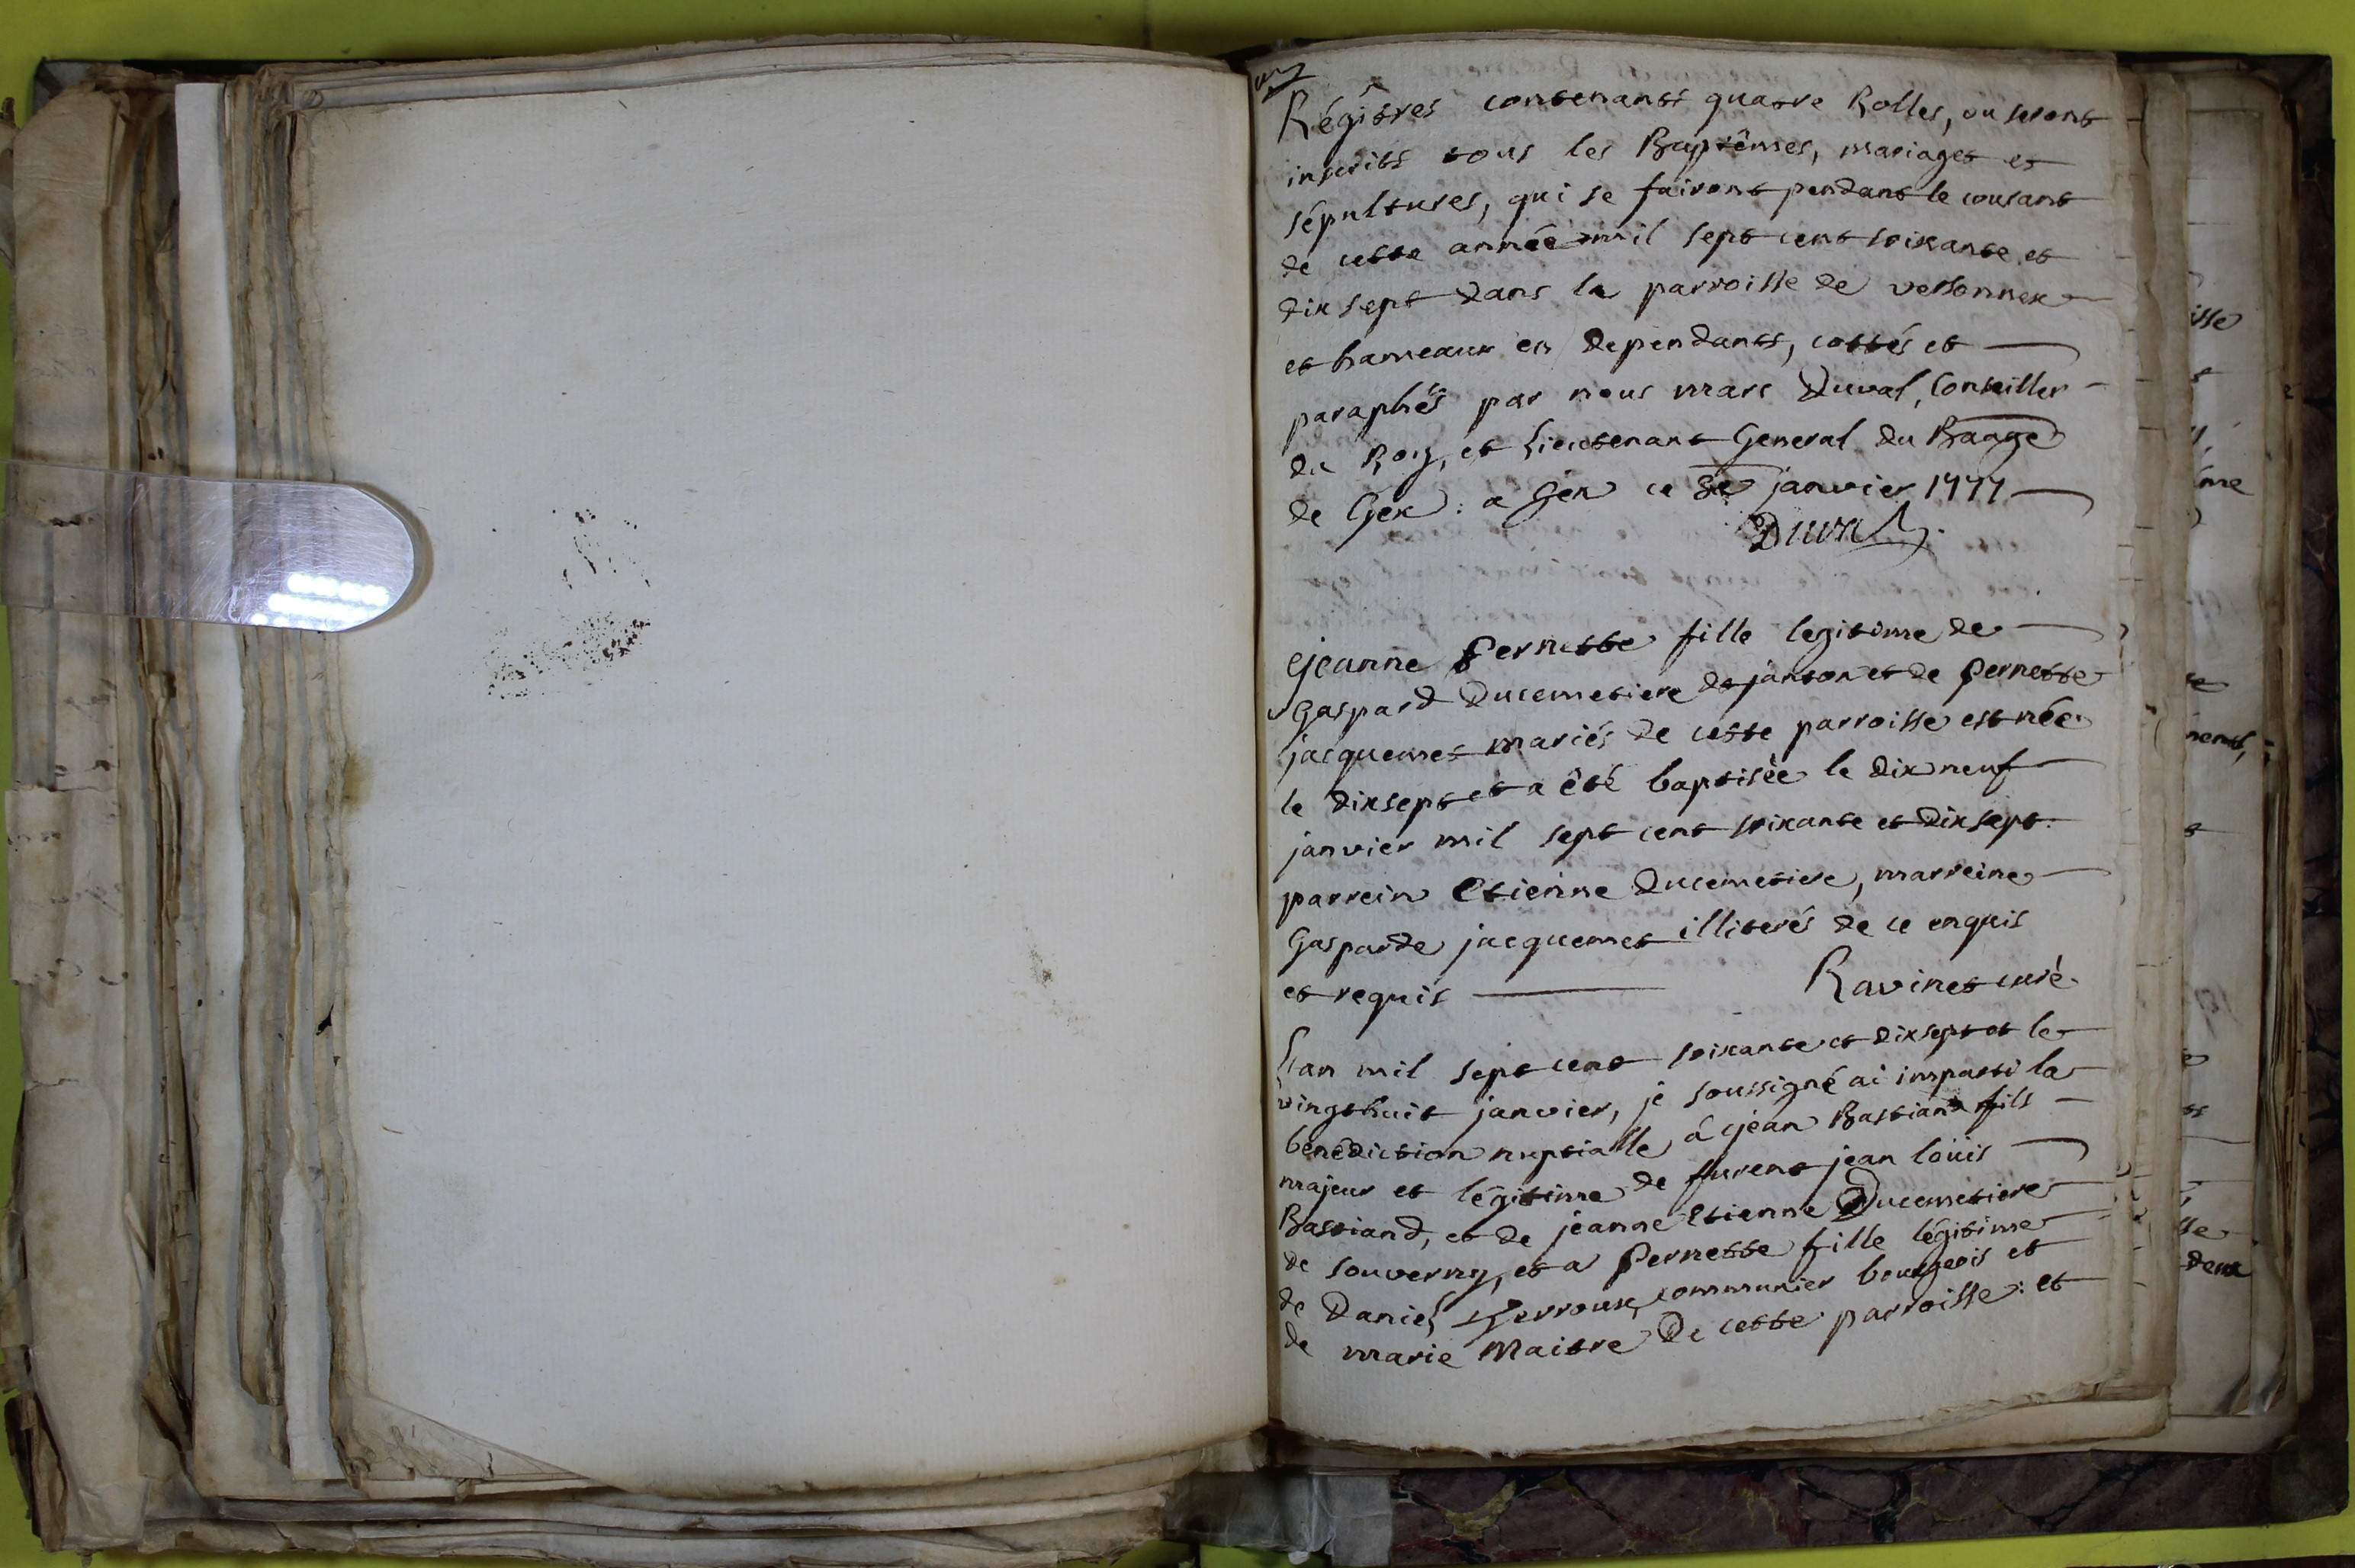 Régîtres contenants quatre Rolles, ou seront
inscrits tous les Baptêmes, mariages et
sépultures, qui se fairont pendant le courant
de cette année mil sept cent soixante et
dix sept dans la parroisse de versonnex
et hameaux en dependants, cottés et
paraphés par nous marc Duval, Conseiller
du Roy, et Lieutenant General du Baage
de Gex : a Gex ce 8e janvier 1777
Duval
jeanne Pernette fille legitime de
Gaspard Ducemetiere de janton et de Pernette
jacquemet mariés de cette parroisse est née
le dixsept et a été baptisée le dixneuf
janvier mil sept cent soixante et dixsept.
parrein Etienne Ducemetiere, marreine
Gasparde jacquemet illiterés de ce enquis
et requis Ravinet curé
L'an mil sept cent soixante et dixsept et le
vingthuit janvier, je soussigné ai imparti la
bénédiction nuptialle á jean Bastiand fils
majeur et légitime de furent jean loüis
Bastiand, et de jeanne Etienne Ducemetiere
de souverny, et a Pernette fille légitime
de Daniel communier bourgeois et
de marie Maitre De cette parroisse : et
isse
nent,
deux